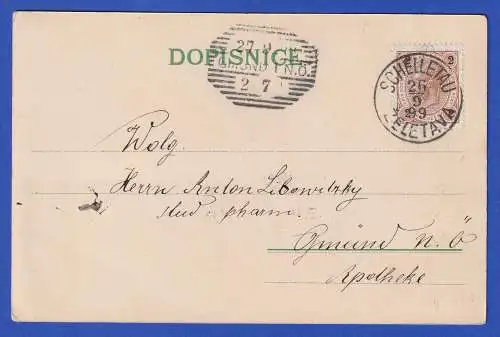 DOPISNICE
27 9
GMÜND I N.Ö.
2 7
2
SCHELLETAU
26
9
99
ŽELETAVA
Wolg.
Herrn Anton Libowitzky
stud pharm.
Gmünd N. Ö
Apotheke